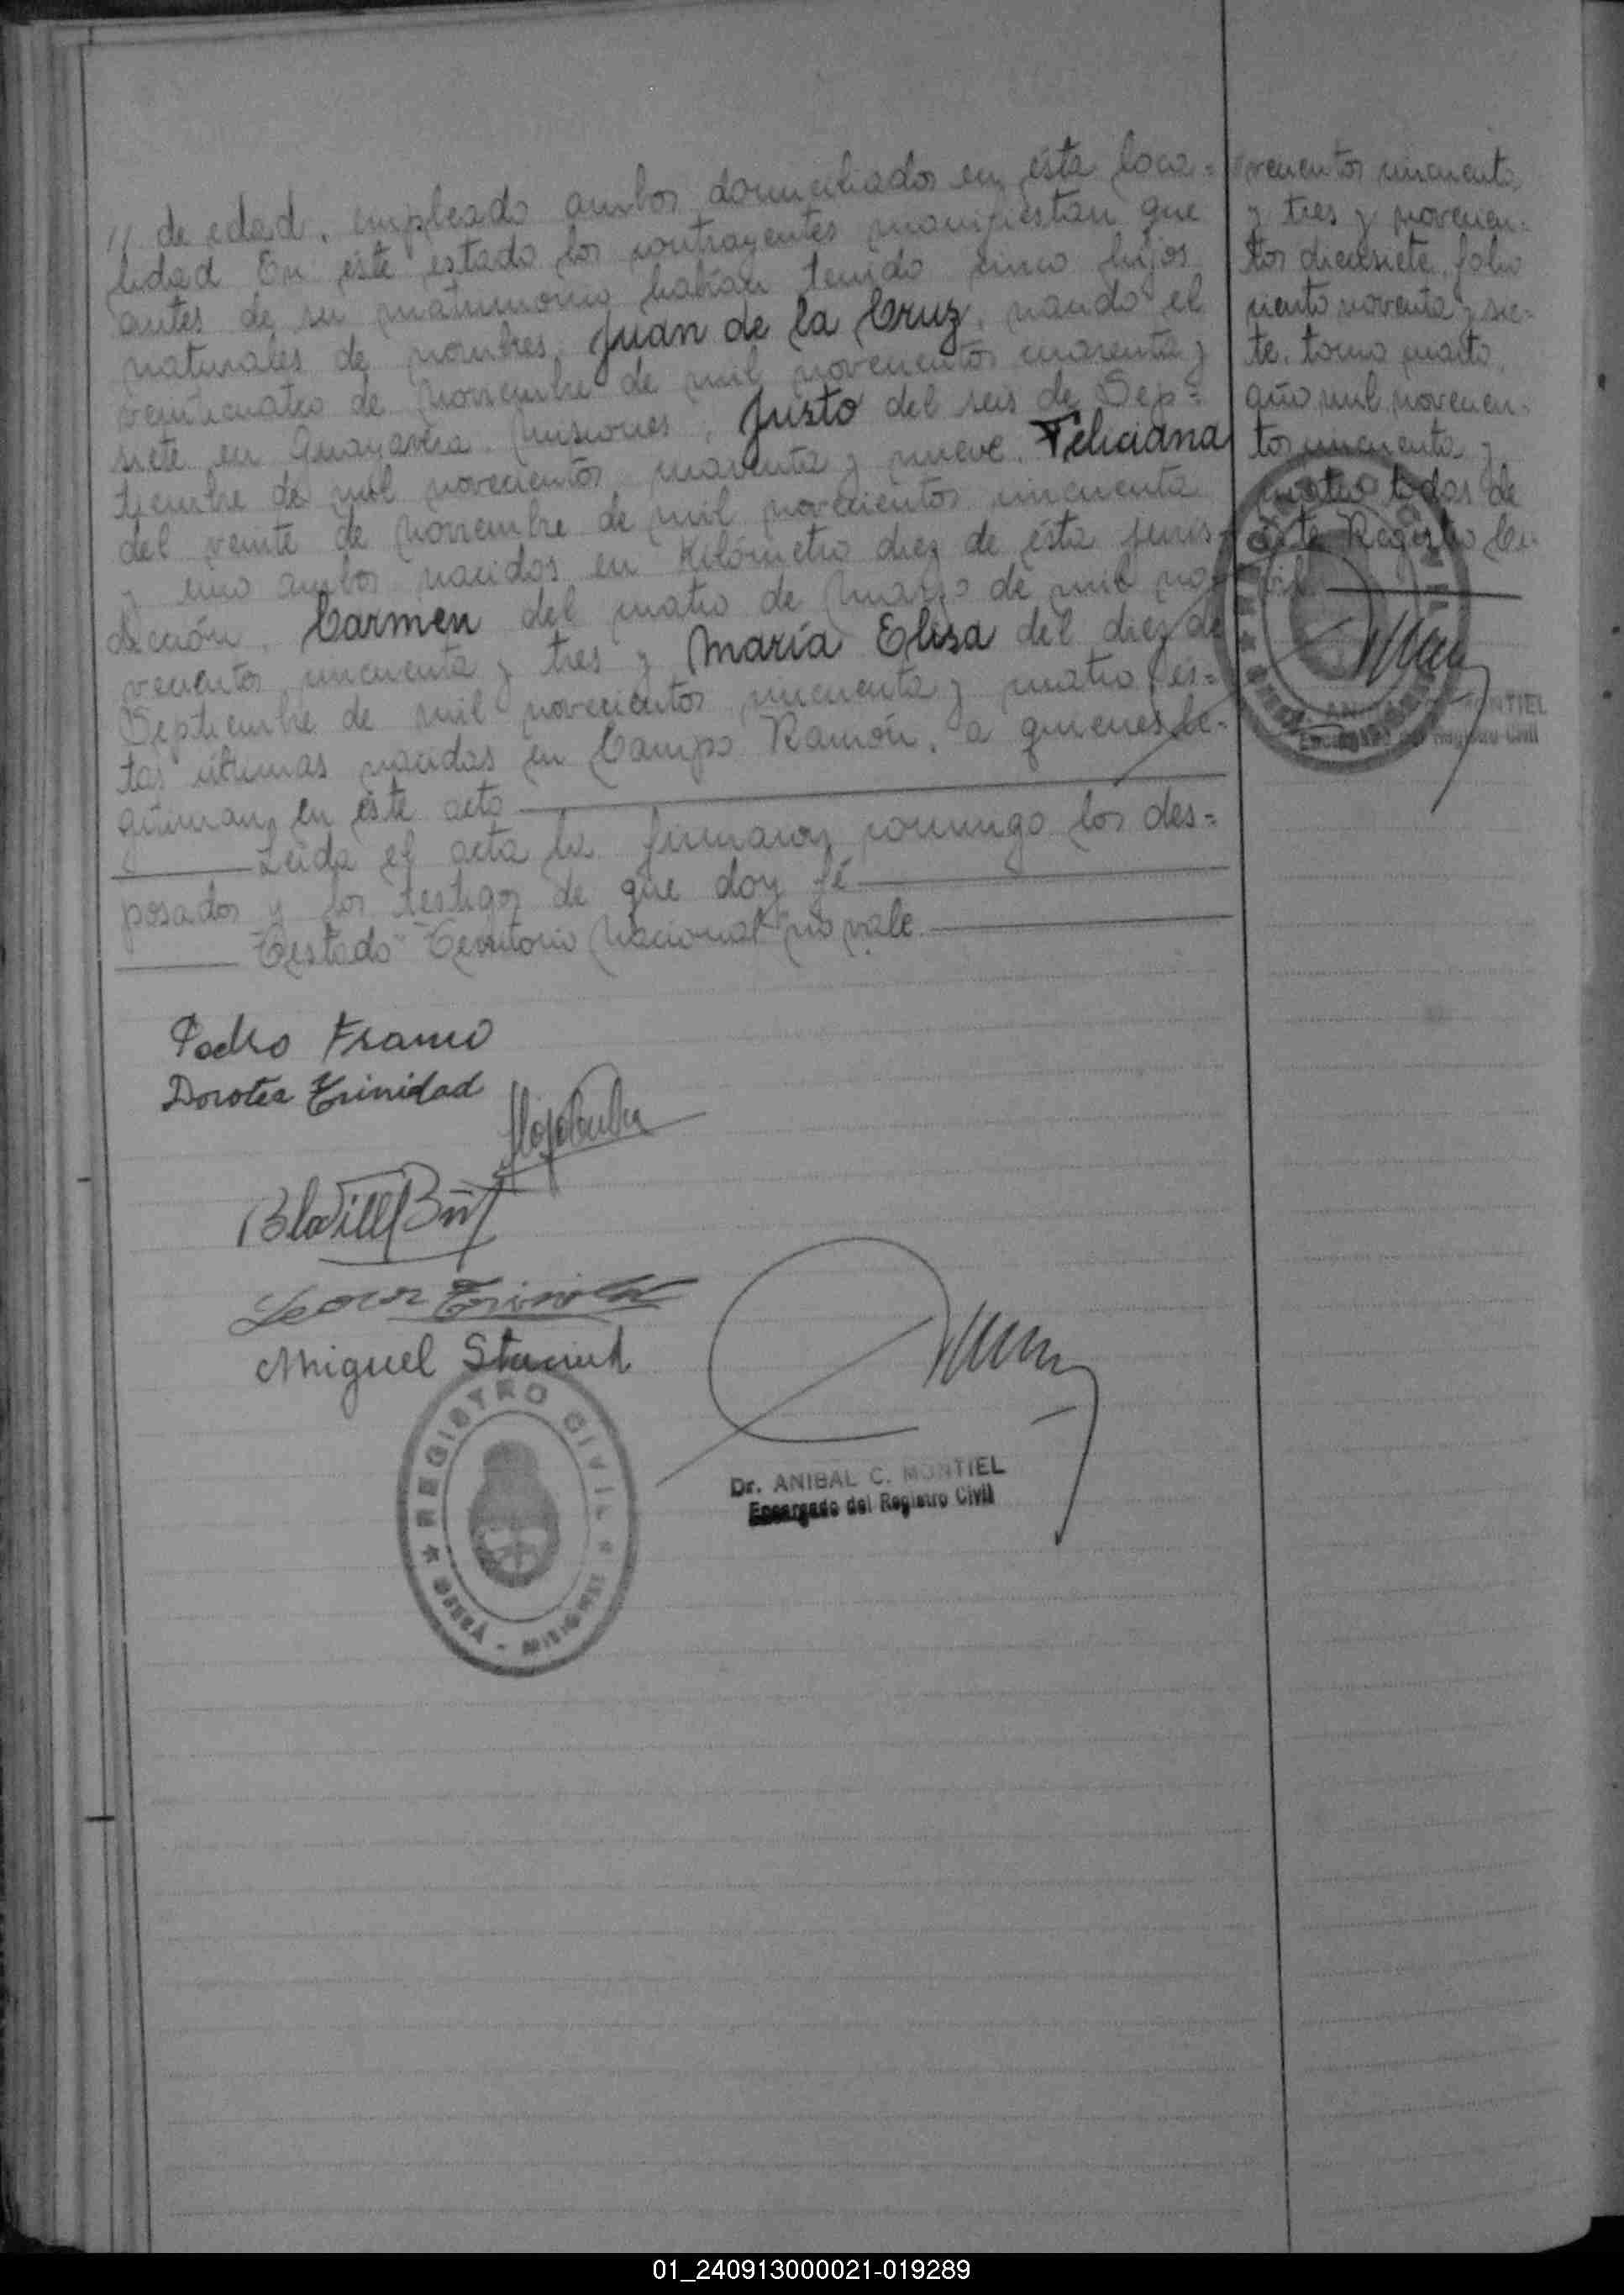 // de edad, empleado ambos domiciliados en ésta loca=
lidad En éste estado los contrayentes manifiestan que
antes de su matrimonio habían tenido cinco hijos
naturales de nombres, Juan de la Cruz, nacido el
veinticuatro de Noviembre de mil novecientos cuarenta y
siete en Misiones, Justo del seis de Sep=
tiembre de mil novecientos cuarenta y nueve, Feliciana
del veinte de Noviembre de mil novecientos cincuenta
y uno ambos nacidos en Kilómetro diez de ésta juris=
dicción, Carmen del cuatro de Marzo de mil no=
vecientos cincuenta y tres y María Elisa del diez de
Septiembre de mil novecientos cincuenta y cuatro, és=
tas últimas nacidas en Campo Ramón, a quienes le=
gitiman en éste acto
Leída el acta la firmaron conmigo los des=
posados y los testigos de que doy fé
Testado "Territorio Nacional" no vale
vecientos cincuenta
y tres y novecien=
tos diecisiete, folio
ciento noventa y sie=
te, tomo cuarto,
año mil novecien=
tos cincuenta y
cuatro todos de
éste Registro Ci=
vil
MONTIEL
Registro Civil
Pedro Franco
Dorotea Trinidad
Trinidad
Miguel
REGISTRO CIVIL
OBERÁ - MISIONES
Dr. ANIBAL C. MONTIEL
Encargado del Registro Civil
01_240913000021-019289